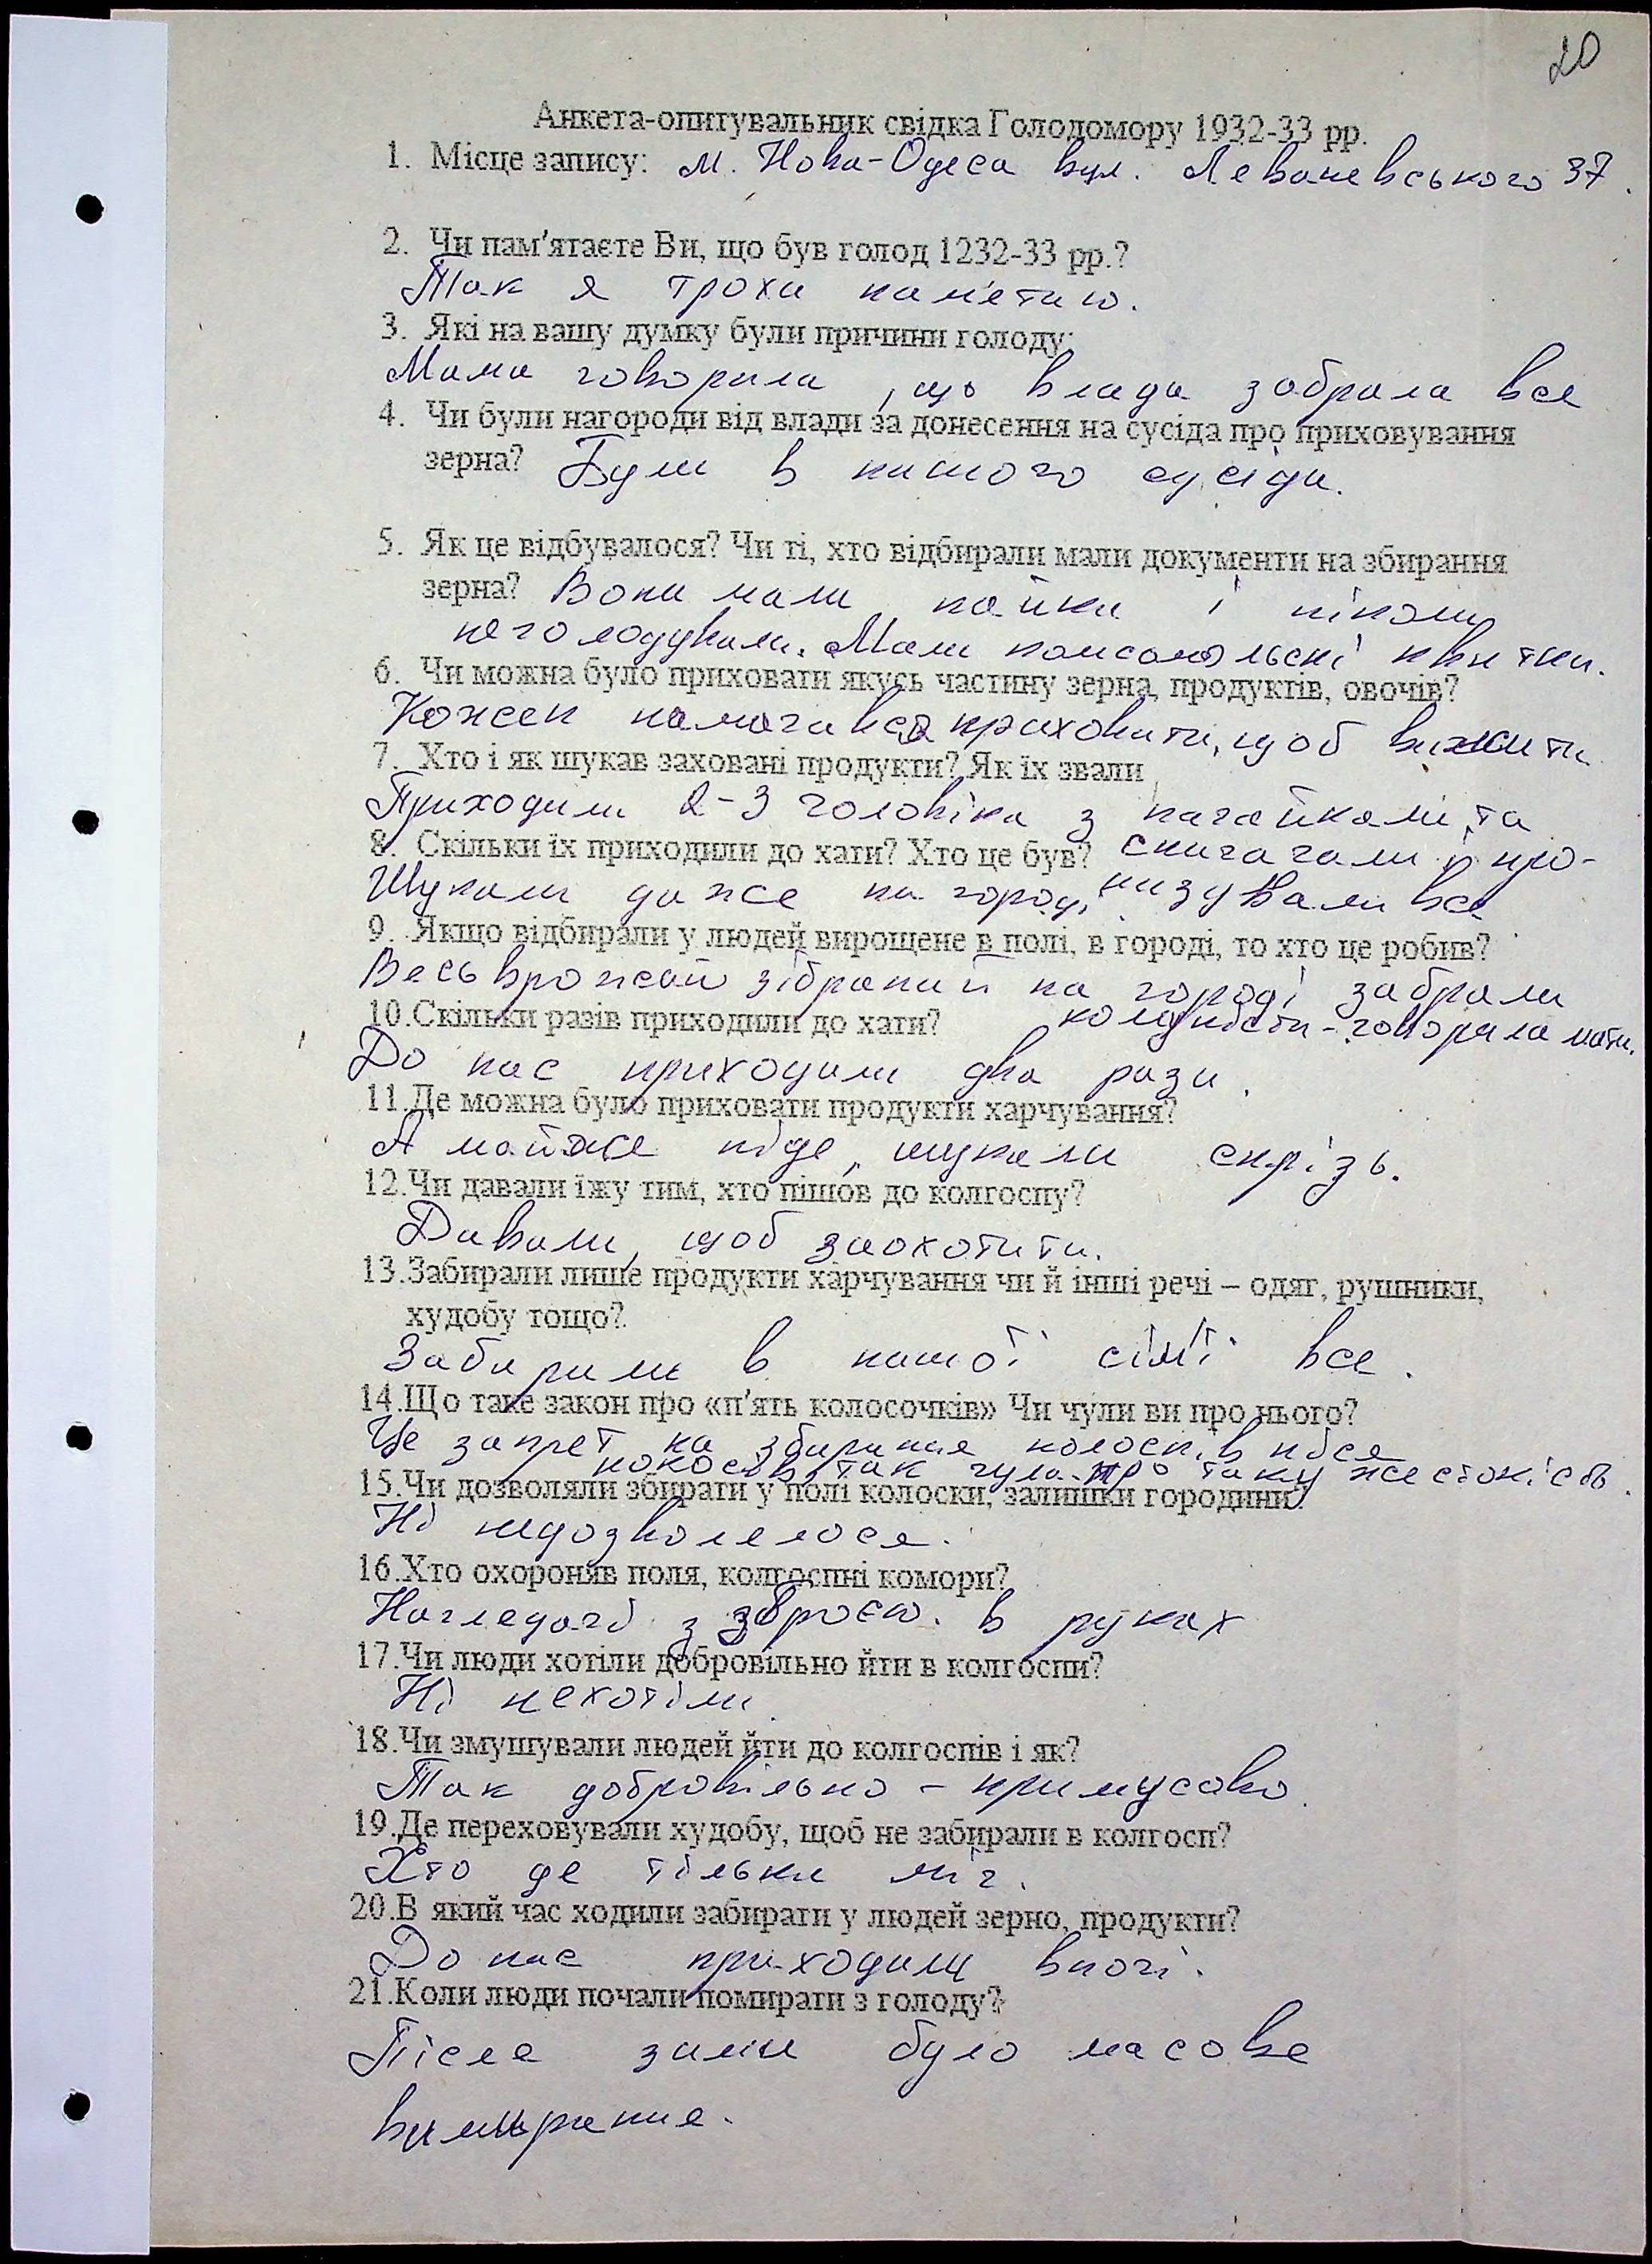 20
Анкета-опитувальник свідка Голодомору 1932-33 рр.
1. Місце запису: м. Нова-Одеса вул. Леваневського 37.
2. Чи пам'ятаєте Ви, що був голод 1232-33 рр.?
Так я трохи памʼятаю.
3. Які на вашу думку були причини голоду:
Мама говорила, що влада забрала все
4. Чи були нагороди від влади за донесення на сусіда про приховування
зерна? Були в нашого сусіда.
5. Як це відбувалося? Чи ті, хто відбирали мали документи на збирання
зерна? Вони мали пайки і ніколи
не голодували. Мали комсомольські квитки.
6. Чи можна було приховати якусь частину зерна, продуктів, овочів?
Кожен намагався приховати, щоб вижити
7. Хто і як шукав заховані продукти? Як їх звали
Приходили 2-3 чоловіка з нагайками, та
8. Скільки їх приходили до хати? Хто це був? спигагами і про-
Шукали даже на городі. низували все
9. Якщо відбирали у людей вирощене в полі, в городі, то хто це робив?
Весь врожай зібраний на городі забрали
10.Скільки разів приходили до хати? комуністи - говорила мати.
До нас приходили два рази.
11.Де можна було приховати продукти харчування?
А майже ніде, шукали скрізь.
12.Чи давали їжу тим, хто пішов до колгоспу?
Давали, щоб заохотити.
13.Забирали лише продукти харчування чи й інші речі – одяг, рушники,
худобу тощо?
Забирали в нашої сімʼї все.
14.Що таке закон про «п'ять колосочків» Чи чули ви про нього?
Це запрет на збирання колосків після
покосів, так чула про таку жестокість.
15.Чи дозволяли збирати у полі колоски, залишки городини?
Ні недозволялося.
16.Хто охороняв поля, колгоспні комори?
Наглядачі з зброєю. в руках
17.Чи люди хотіли добровільно йти в колгоспи?
Ні нехотіли.
18.Чи змушували людей йти до колгоспів і як?
Так добровільно - примусово.
19.Де переховували худобу, щоб не забирали в колгосп?
Хто де тільки міг.
20.В який час ходили забирати у людей зерно, продукти?
До нас приходили вночі.
21.Коли люди почали помирати з голоду?
Після зими було масове
вимирання.